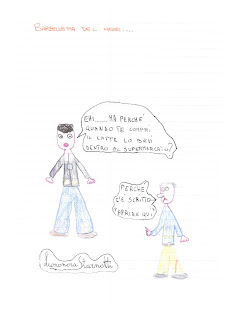 BARZELLETTA DEL MESE....
EHI.....MA PERCHÉ
QUANDO TE COMPRI
IL LATTE LO BEVI
DENTRO AL SUPERMERCATO?
PERCHÉ
C'È SCRITTO
"APRIRE QUI"
Eleonora